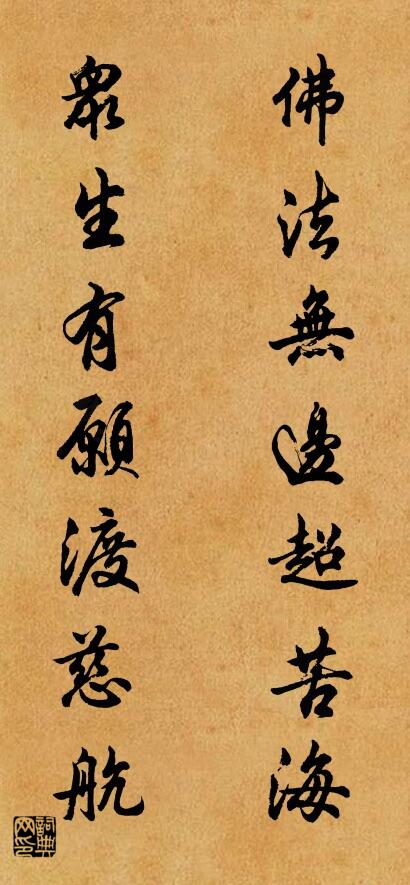 佛法無邊超苦海
眾生有願渡慈航
詞典网印